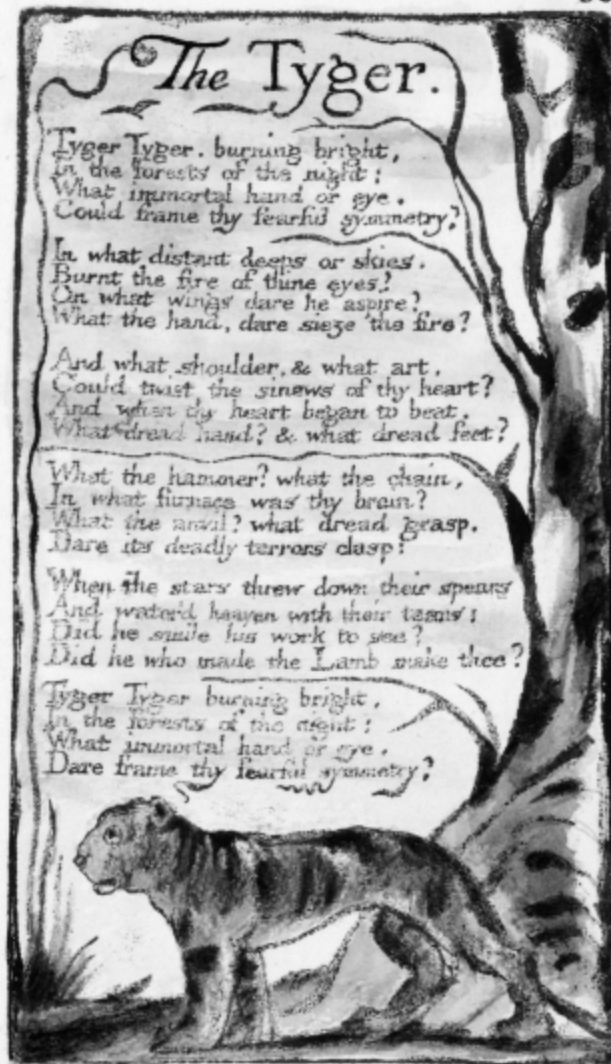 The Tyger.
Tyger Tyger. burning bright,
In the forests of the night:
What immortal hand or eye.
Could frame thy fearful symmetry?
In what distant deeps or skies.
Burnt the fire of thine eyes?
On what wings dare he aspire?
What the hand, dare sieze the fire?
And what shoulder, & what art,
Could twist the sinews of thy heart?
And when thy heart began to beat,
What dread hand? & what dread feet?
What the hammer? what the chain,
In what furnace was thy brain?
What the anvil? what dread grasp.
Dare its deadly terrors clasp!
When the stars threw down their spears
And water'd heaven with their tears:
Did he smile his work to see?
Did he who made the Lamb make thee?
Tyger Tyger burning bright,
In the forests of the night:
What immortal hand or eye.
Dare frame thy fearful symmetry?